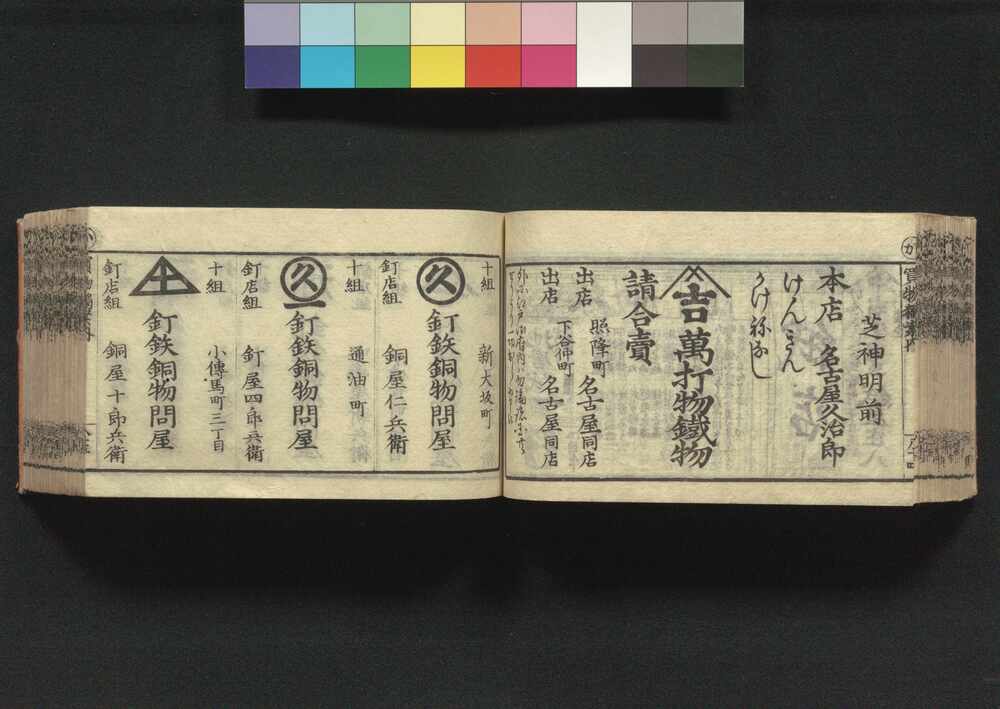 芝神明前
本店 名古屋久治郎
けんきん
かけねなし
吉 萬打物鐵物
請合賣
出店 照降町 名古屋同店
出店 下谷仲町 名古屋同店
十組 新大坂町
久 釘鉄銅物問屋
釘店組 銅屋仁兵衛
十組 通油町
久一 釘鉄銅物問屋
釘店組 釘屋四郎兵衛
十組 小傳馬町三丁目
土 釘鉄銅物問屋
釘店組 銅屋十郎兵衛